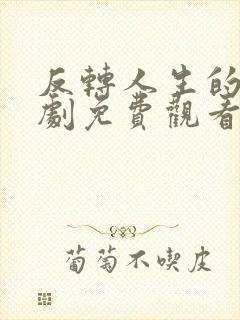 反轉人生的
劇免費觀看
葡萄不喫皮